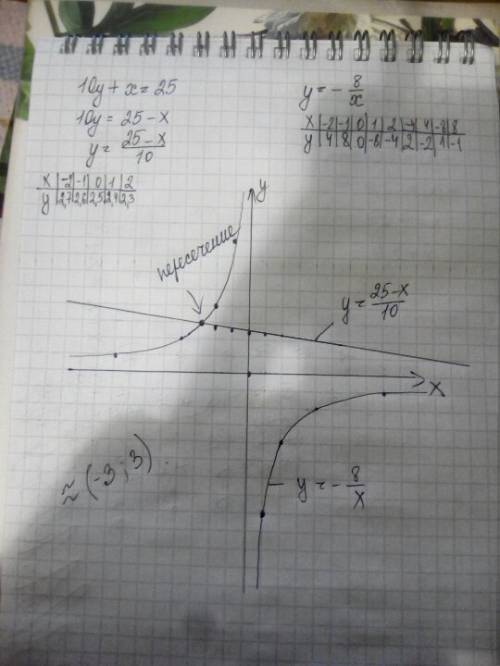 10y + x = 25
10y = 25 - x
y = (25 - x)/10
x | -2 | -1 | 0 | 1 | 2
y | 2,7 | 2,6 | 2,5 | 2,4 | 2,3
y = - 8/x
x | -2 | -1 | 0 | 1 | 2 | -4 | 4 | -8 | 8
y | 4 | 8 | 0 | -8 | -4 | 2 | -2 | 1 | -1
y
пересечение
y = (25-x)/10
x
≈ (-3 ; 3)
y = - 8/x